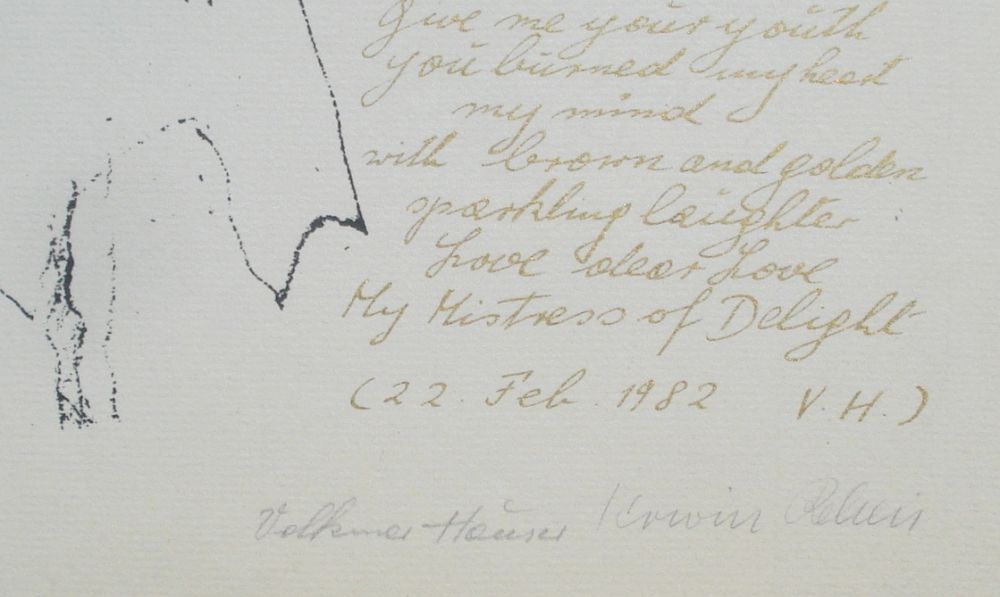 Give me your youth
you burned my heart
my mind
with brown and golden
sparkling laughter
Love dear Love
My Mistress of Delight
(22. Feb. 1982 V. H.)
Volkmar Hauser Erwin